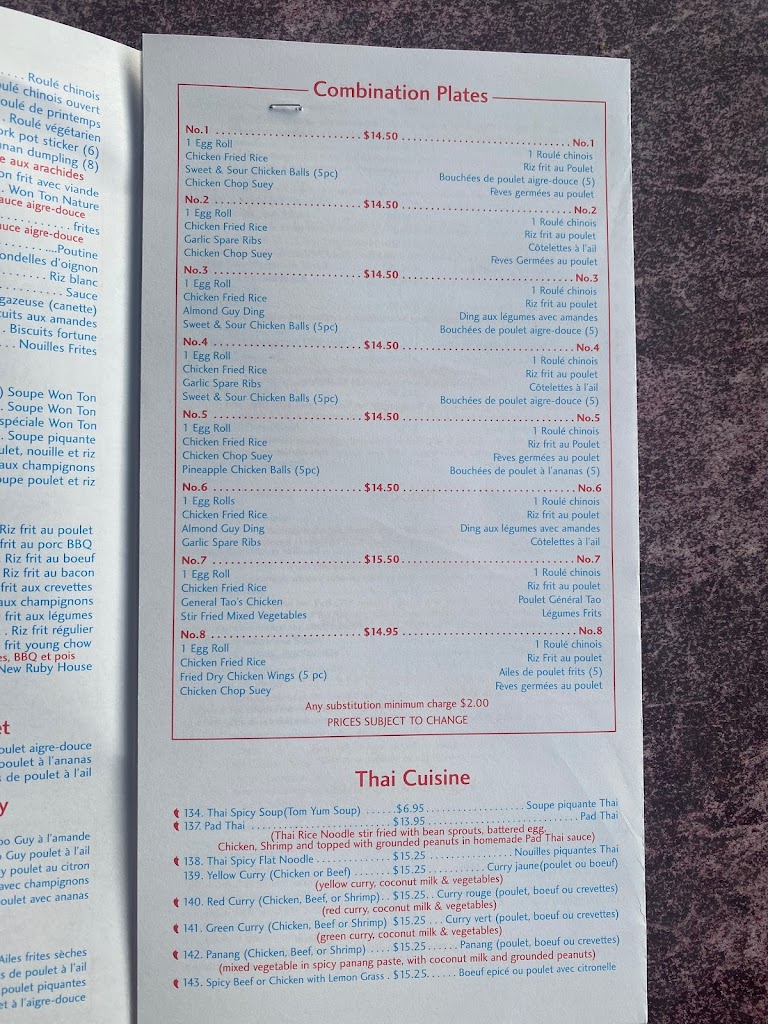 Roulé chinois
chinois ouvert
de printemps
Roulé végétarien
pot sticker (6)
dumpling (8)
aux arachides
frit avec viande
Won Ton Nature
aigre-douce
frites
aigre-douce
Poutine
d'oignon
Riz blanc
Sauce
gazeuse (canette)
aux amandes
Biscuits fortune
Nouilles Frites
Soupe Won Ton
Soupe Won Ton
spéciale Won Ton
Soupe piquante
nouille et riz
aux champignons
poulet et riz
Riz frit au poulet
frit au porc BBQ
Riz frit au boeuf
Riz frit au bacon
frit aux crevettes
aux champignons
frit aux légumes
Riz frit régulier
frit young chow
BBQ et pois
New Ruby House
aigre-douce
poulet à l'ananas
de poulet à l'ail
Guy à l'amande
Guy poulet à l'ail
poulet au citron
avec champignons
avec ananas
Ailes frites sèches
de poulet à l'ail
poulet piquantes
à l'aigre-douce
Combination Plates
No.1 ........ $14.50 ........ No.1
1 Egg Roll 1 Roulé chinois
Chicken Fried Rice Riz frit au Poulet
Sweet & Sour Chicken Balls (5pc) Bouchées de poulet aigre-douce (5)
Chicken Chop Suey Fèves germées au poulet
No.2 ........ $14.50 ........ No.2
1 Egg Roll 1 Roulé chinois
Chicken Fried Rice Riz frit au poulet
Garlic Spare Ribs Côtelettes à l'ail
Chicken Chop Suey Fèves Germées au poulet
No.3 ........ $14.50 ........ No.3
1 Egg Roll 1 Roulé chinois
Chicken Fried Rice Riz frit au poulet
Almond Guy Ding Ding aux légumes avec amandes
Sweet & Sour Chicken Balls (5pc) Bouchées de poulet aigre-douce (5)
No.4 ........ $14.50 ........ No.4
1 Egg Roll 1 Roulé chinois
Chicken Fried Rice Riz frit au poulet
Garlic Spare Ribs Côtelettes à l'ail
Sweet & Sour Chicken Balls (5pc) Bouchées de poulet aigre-douce (5)
No.5 ........ $14.50 ........ No.5
1 Egg Roll 1 Roulé chinois
Chicken Fried Rice Riz frit au Poulet
Chicken Chop Suey Fèves germées au poulet
Pineapple Chicken Balls (5pc) Bouchées de poulet à l'ananas (5)
No.6 ........ $14.50 ........ No.6
1 Egg Rolls 1 Roulé chinois
Chicken Fried Rice Riz frit au poulet
Almond Guy Ding Ding aux légumes avec amandes
Garlic Spare Ribs Côtelettes à l'ail
No.7 ........ $15.50 ........ No.7
1 Egg Roll 1 Roulé chinois
Chicken Fried Rice Riz frit au poulet
General Tao's Chicken Poulet Général Tao
Stir Fried Mixed Vegetables Légumes Frits
No.8 ........ $14.95 ........ No.8
1 Egg Roll 1 Roulé chinois
Chicken Fried Rice Riz Frit au poulet
Fried Dry Chicken Wings (5 pc) Ailes de poulet frits (5)
Chicken Chop Suey Fèves germées au poulet
Any substitution minimum charge $2.00
PRICES SUBJECT TO CHANGE
Thai Cuisine
134. Thai Spicy Soup(Tom Yum Soup) ......$6.95........ Soupe piquante Thai
137. Pad Thai ........ $13.95 ........ Pad Thai
(Thai Rice Noodle stir fried with bean sprouts, battered egg,
Chicken, Shrimp and topped with grounded peanuts in homemade Pad Thai sauce)
138. Thai Spicy Flat Noodle ........ $15.25 ........ Nouilles piquantes Thai
139. Yellow Curry (Chicken or Beef) ....... $15.25 ........ Curry jaune(poulet ou boeuf)
(yellow curry, coconut milk & vegetables)
140. Red Curry (Chicken, Beef, or Shrimp) .. $15.25.. Curry rouge (poulet, boeuf ou crevettes)
(red curry, coconut milk & vegetables)
141. Green Curry (Chicken, Beef, or Shrimp) $15.25 ... Curry vert (poulet, boeuf ou crevettes)
(green curry, coconut milk & vegetables)
142. Panang (Chicken, Beef, or Shrimp) .... $15.25...... Panang (poulet, boeuf ou crevettes)
(mixed vegetable in spicy panang paste, with coconut milk and grounded peanuts)
143. Spicy Beef or Chicken with Lemon Grass . $15.25...... Boeuf epicé ou poulet avec citronelle